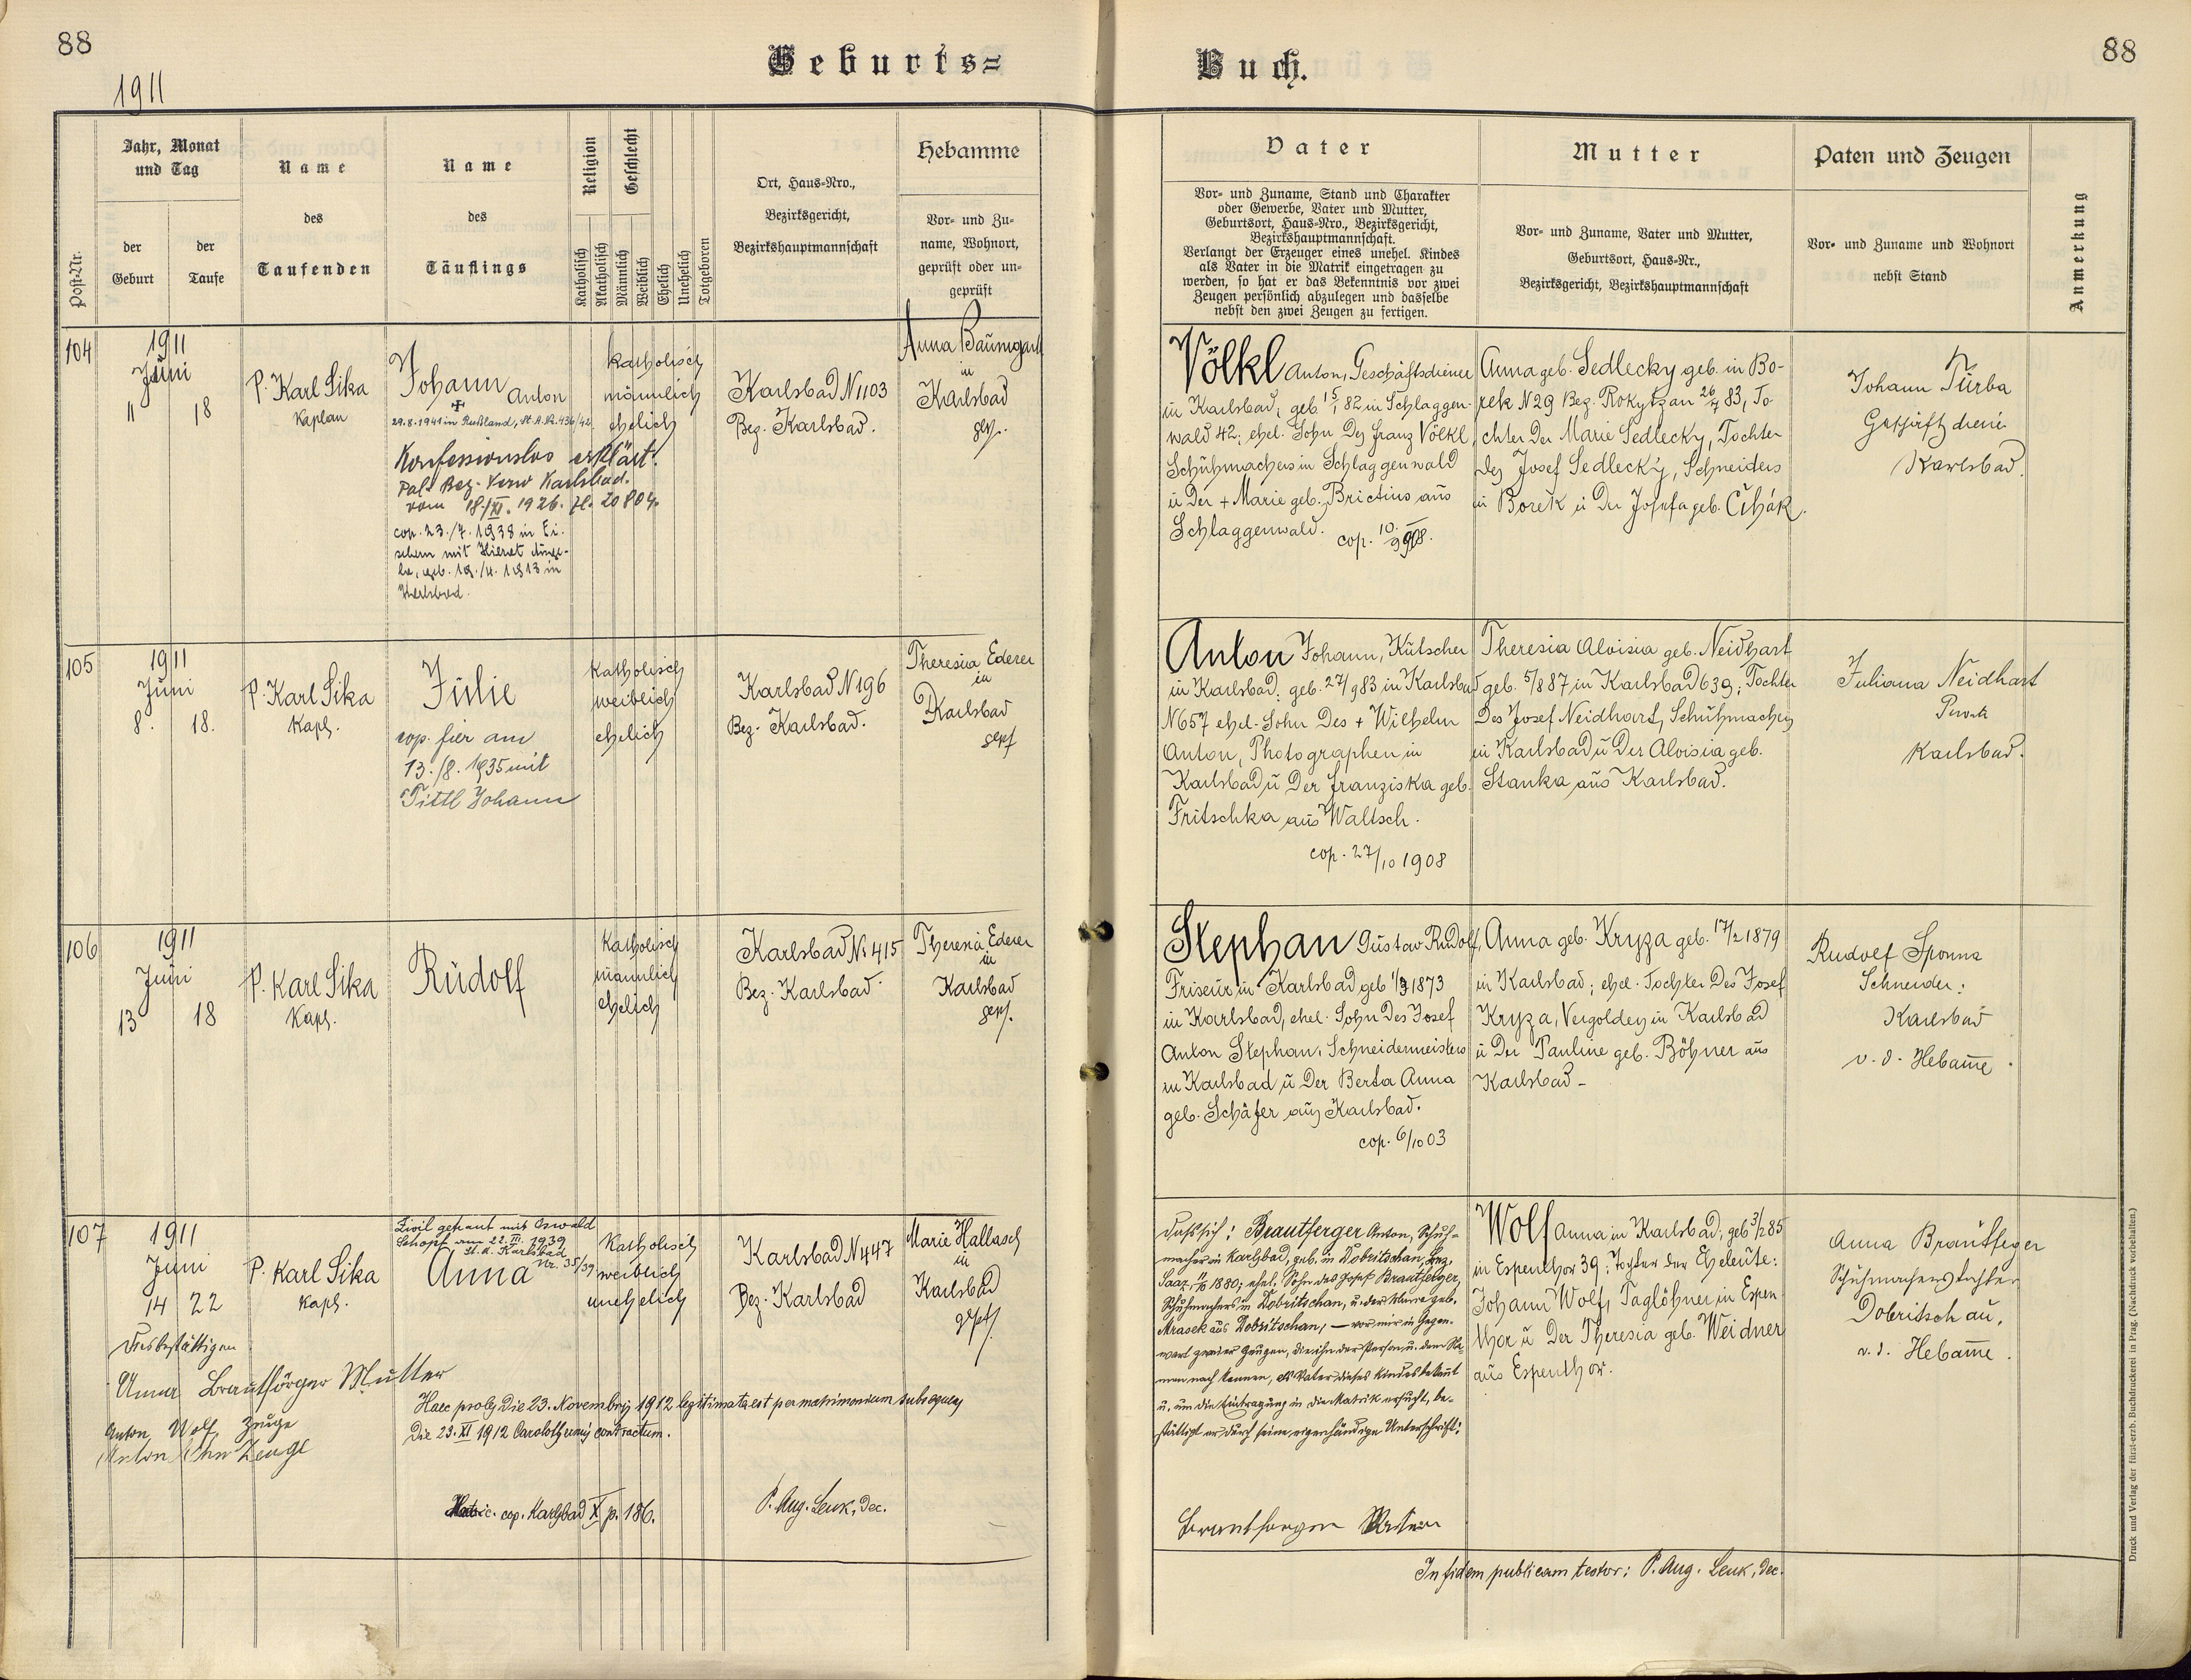 88
Geburts=
1911
Jahr, Monat
und Tag
Name
Name
Religion
Geschlecht
Ort, Haus=Nro.,
Hebamme
des
des
Bezirksgericht,
Vor= und Zu=
Post=Nr.
der
der
Katholisch
Akatholisch
Männlich
Weiblich
Ehelich
Unehelich
Totgeboren
Bezirkshauptmannschaft
name, Wohnort,
Geburt
Taufe
Taufenden
Täuflings
geprüft oder un=
geprüft
104
1911
Juni
11
18
P. Karl Sika
Kaplan
Johann Anton
29.8.1941 in Rußland, St. A. Nr. 436/42
Konfessionslos erklärt.
Pol. Bez. Verw Karlsbad.
vom 18./XI. 1926. Zl. 20804.
cop. 23./7. 1938 in
mit
geb. 19./4. 1913 in
Karlsbad.
katholisch
männlich
ehelich
Karlsbad N 1103
Bez. Karlsbad.
Anna Baumgart
in
Karlsbad
gepf.
105
1911
Juni
8.
18.
P. Karl Sika
Kapl.
Julie
cop. hier am
13./8. 1935 mit
Tittl Johann
Katholisch
weiblich
ehelich
Karlsbad N 196
Bez. Karlsbad.
Theresia Ederer
in
Karlsbad
gepf
106
1911
Juni
13
18
P. Karl Sika
Kapl.
Rudolf
Katholisch
männlich
ehelich
Karlsbad N: 415
Bez. Karlsbad.
Theresia Ederer
in
Karlsbad
gepf.
107
1911
Juni
14
22
P. Karl Sika
Kapl.
Zivil getraut mit Oswald
Schopf am 22. III. 1939
St. A. Karlsbad
Nr. 35/39
Anna
Katholisch
weiblich
unehelich
Karlsbad N 447
Bez. Karlsbad
Marie Hallasch
in
Karlsbad
gepf.
Dies bestättigen
Anna Mutter
Anton Wolf Zeuge
Anton Zeuge
Haec proles die 23. Novembris 1912 legitimata est per matrimonium subsequens
die 23. XI 1912 Carolothermis contractum.
cop. Karlsbad X p. 186.
P. Aug. Leuk, Dec.
Buch.
88
Vater
Mutter
Paten und Zeugen
Anmerkung
Vor= und Zuname, Stand und Charakter
oder Gewerbe, Vater und Mutter,
Geburtsort, Haus=Nro., Bezirksgericht,
Bezirkshauptmannschaft.
Verlangt der Erzeuger eines unehel. Kindes
als Vater in die Matrik eingetragen zu
werden, so hat er das Bekenntnis vor zwei
Zeugen persönlich abzulegen und dasselbe
nebst den zwei Zeugen zu fertigen.
Vor= und Zuname, Vater und Mutter,
Geburtsort, Haus=Nr.,
Bezirksgericht, Bezirkshauptmannschaft
Vor= und Zuname und Wohnort
nebst Stand
Völkl Anton, Geschäftsdiener
in Karlsbad, geb 15/1 82 in Schlaggen-
wald 42; ehel. Sohn des Franz Völkl,
Schuhmachers in Schlaggenwald
u der + Marie geb. Brictius aus
Schlaggenwald.
cop. 10/9 908.
Anna geb. Sedlecky geb. in Bo-
rek N 29 Bez. Rokytzan 26/7 83, To-
chter der Marie Sedlecky, Tochter
des Josef Sedlecky, Schneiders
in Borek u der Josefa geb. Čihák.
Johann Turba
Geschäftsdiener
Karlsbad.
Anton Johann, Kutscher
in Karlsbad; geb. 27/9 83 in Karlsbad
N 657 ehel. Sohn des + Wilhelm
Anton, Photographen in
Karlsbad u der Franziska geb.
Fritschka aus Waltsch.
cop. 27/10 1908
Theresia Aloisia geb. Neidhart
geb. 5/8 87 in Karlsbad 639; Tochter
des Josef Neidhart, Schuhmachers
in Karlsbad u der Aloisia geb.
Stanka aus Karlsbad.
Juliana Neidhart
Private
Karlsbad.
Stephan Gustav Rudolf,
Friseur in Karlsbad geb 1/3 1873
in Karlsbad, ehel. Sohn des Josef
Anton Stephan, Schneidermeisters
in Karlsbad u der Berta Anna
geb. Schäfer aus Karlsbad.
cop. 6/10 03
Anna geb. Kryza geb. 17/2 1879
in Karlsbad; ehel. Tochter des Josef
Kryza, Vergolders in Karlsbad
u der Pauline geb. Böhner aus
Karlsbad -
Rudolf Sponna
Schneider:
Karlsbad
v. d. Hebamme.
Daß ich: Brautferger Anton, Schuh-
macher in Karlsbad, geb. in Dobritschan, Bez.
Saaz, 1880; ehel. Sohn des Josef Brautferger,
Schuhmachers in Dobritschan, u. der Marie geb.
Mrasek aus Dobritschan, — vor mir in Gegen-
wart zweier Zeugen, die ihn der Person u. dem Na-
men nach kennen, als Vater dieses Kindes bekennt
u. um die Eintragung in die Matrik ersucht, be-
stättigt er durch seine eigenhändige Unterschrift:
Wolf Anna in Karlsbad, geb 3/2 85
in Espenthor 39; Tochter der Eheleute:
Johann Wolf, Taglöhner in Espen
thor u der Theresia geb. Weidner
aus Espenthor.
Anna Brautfeger
Schuhmacherstochter
Dobritschau,
v. d. Hebamme.
In fidem publicam testor: P. Aug. Leuk, Dec.
Druck und Verlag der fürst-erzb. Buchdruckerei in Prag. (Nachdruck vorbehalten.)